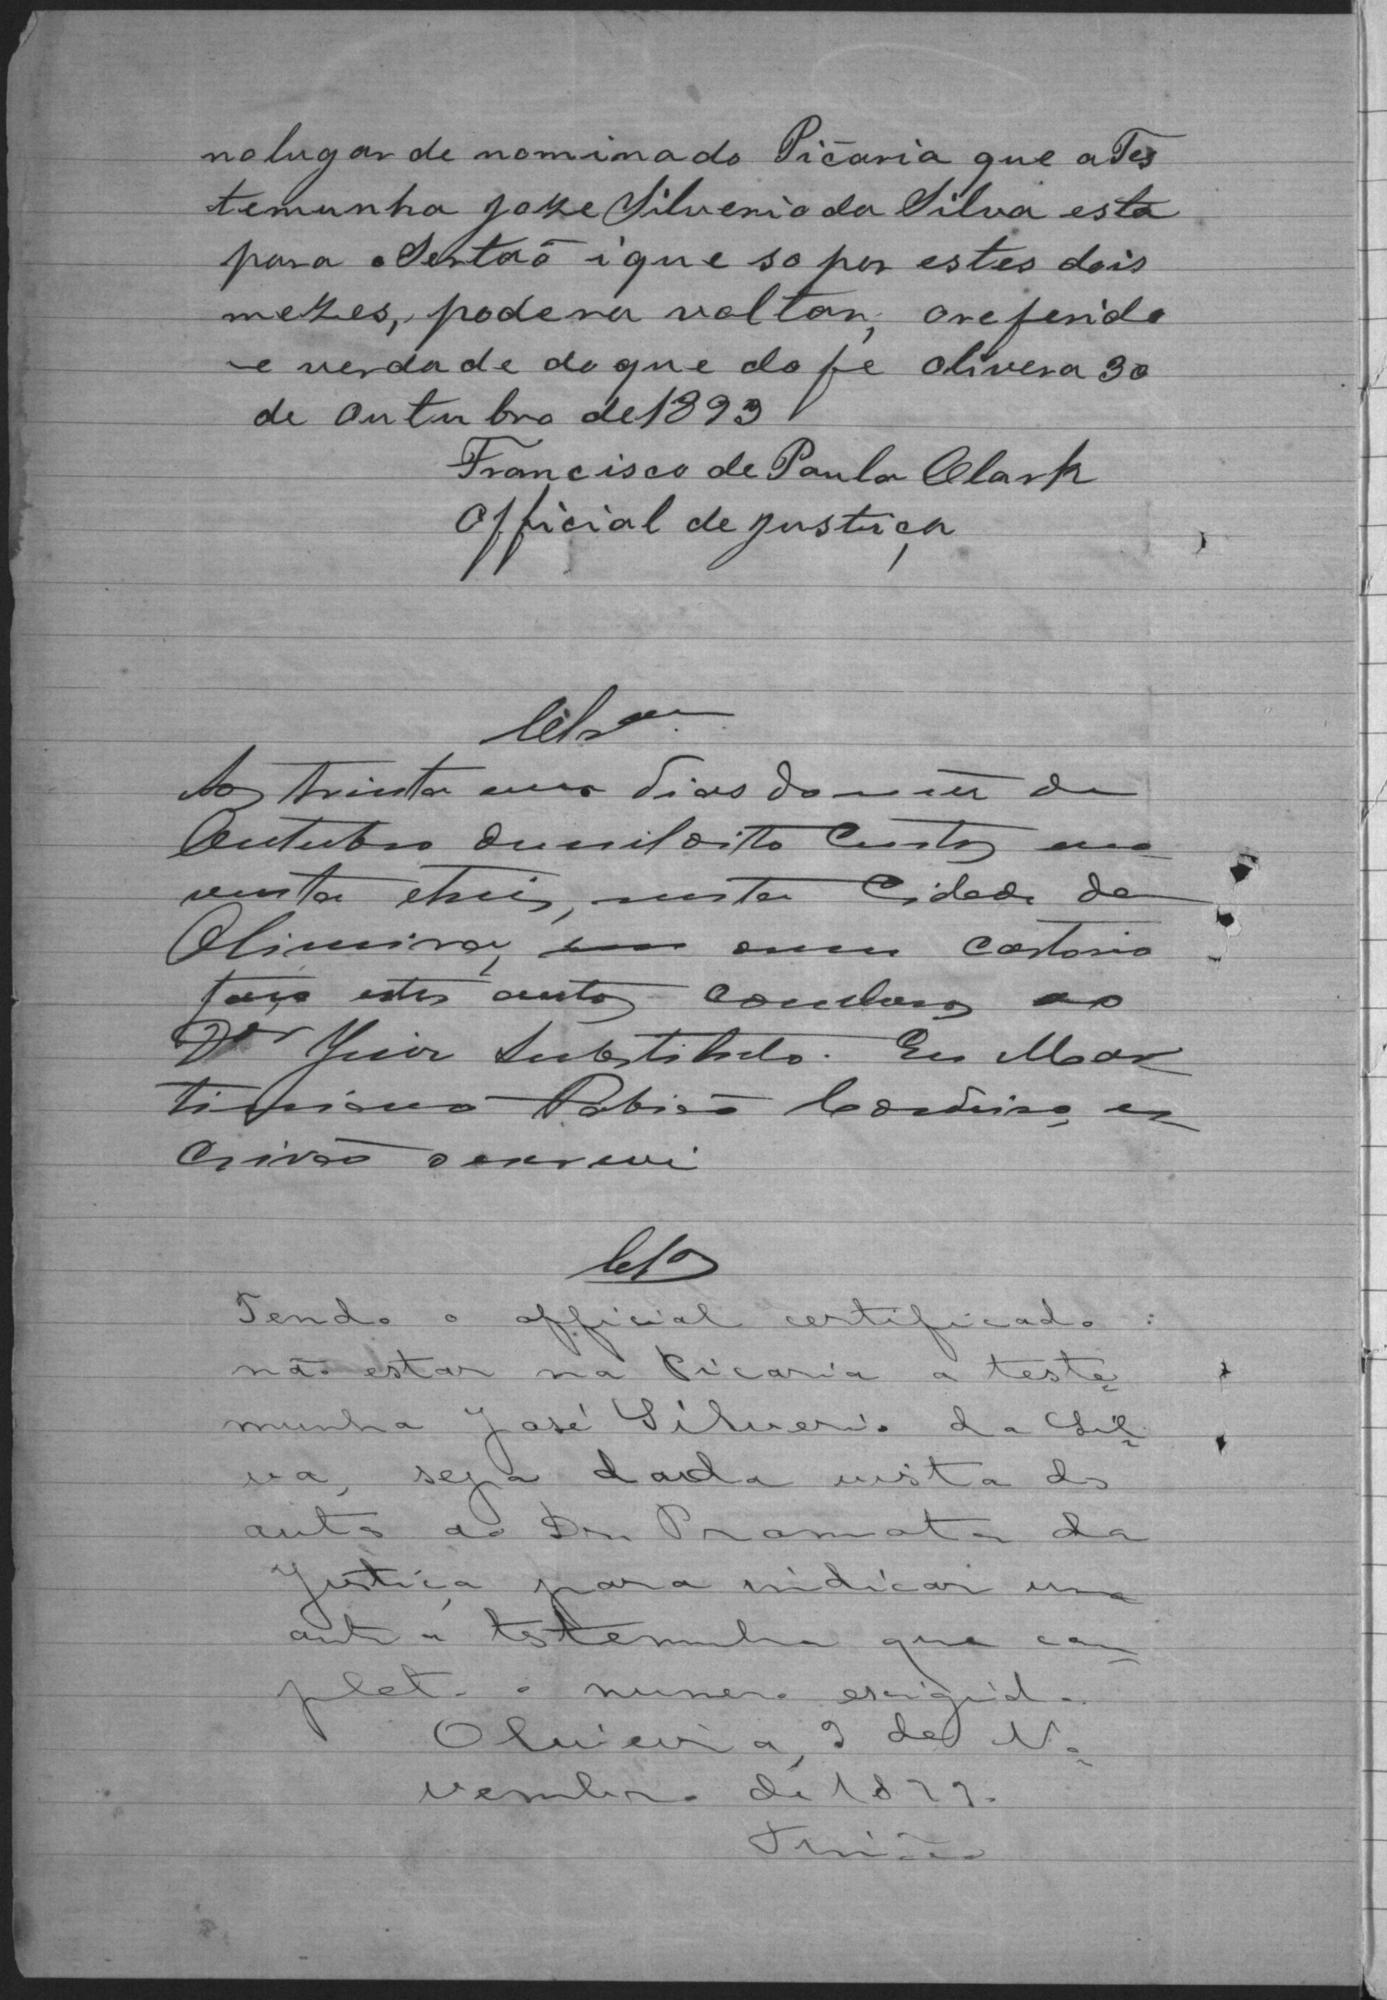 no lugar de nominado Picaria que a Tes
temunha Joze Silverio da Silva esta
para o Sertaõ i que so por estes dois
mezes, podera voltar, o referido
e verdade do que do fe Olivera 30
de Outubro de 1893
Francisco de Paula Clark
Official de justiça
Clsam
Aos trinta um dias do mez de
Outubro de mil oito centos no
venta e tres, nesta Cidade de
Oliveira, em meu cartorio
faço estes autos conclusos ao
Dor Juiz Substituto. Eu Mar
timiano Cordeiro, es
crivão o escrevi
Clsos
Tendo o official certificado
não estar na Picaria a teste
munha José Silverio da Sil
va, seja dada vista dos
autos ao Dr. Promotor da
Justiça para indicar uma
outra testemunha que com
plete o numero exigido.
Oliveira, 3 de No
vembro de 1893.